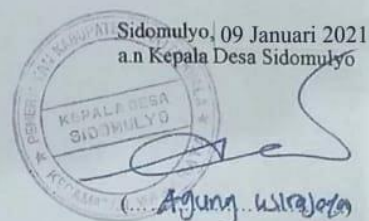 Sidomulyo, 09 Januari 2021
a.n Kepala Desa Sidomulyo
KEPALA DESA
SIDOMULYO
KECAMATAN
(.... Agung wirajaya)